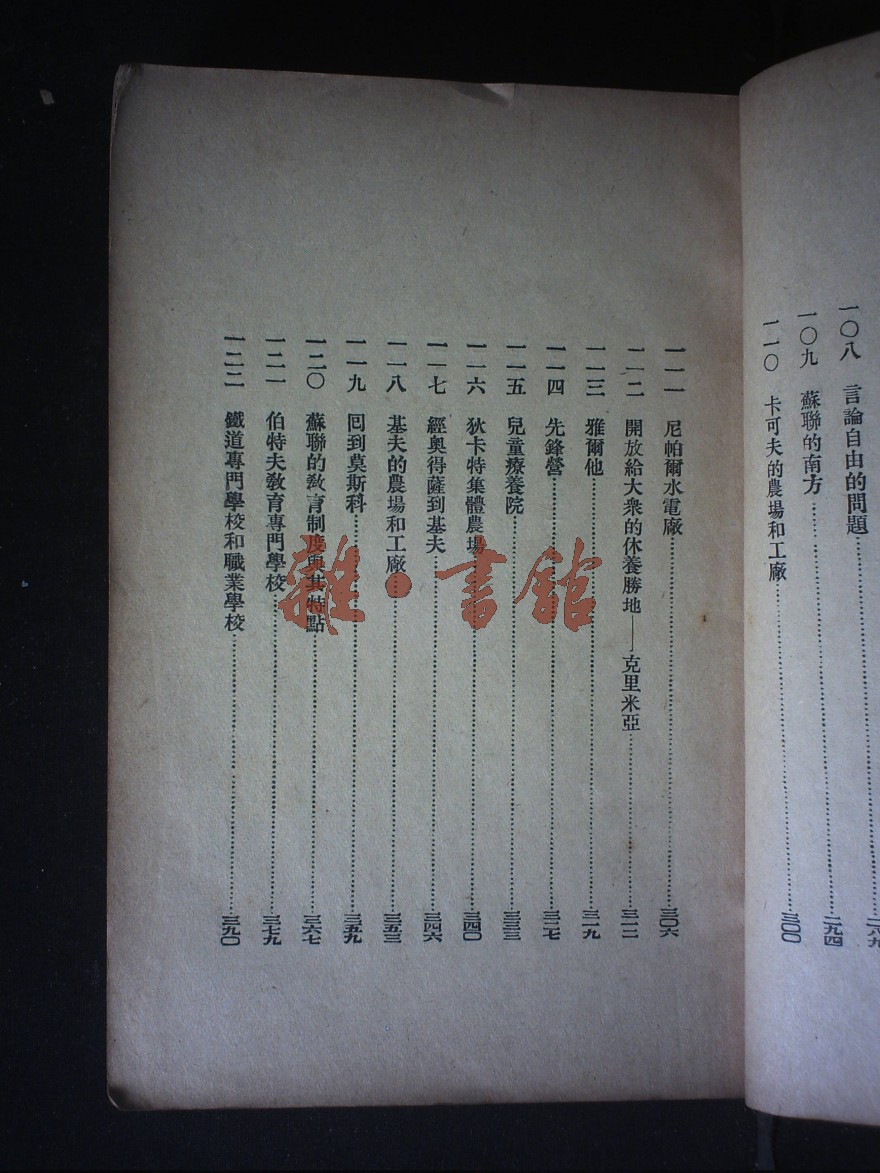 一〇八 言論自由的問題……二八九
一〇九 蘇聯的南方……二九四
一一〇 卡可夫的農場和工廠……三〇〇
一一一 尼帕爾水電廠……三〇六
一一二 開放給大衆的休養勝地——克里米亞……三一二
一一三 雅爾他……三一九
一一四 先鋒營……三二七
一一五 兒童療養院……三三三
一一六 狄卡特集體農場……三四〇
一一七 經奧得薩到基夫……三四六
一一八 基夫的農場和工廠……三五三
一一九 囘到莫斯科……三五九
一二〇 蘇聯的敎育制度與其特點……三六七
一二一 伯特夫敎育專門學校……三七九
一二二 鐵道專門學校和職業學校……三九〇
雜·書館